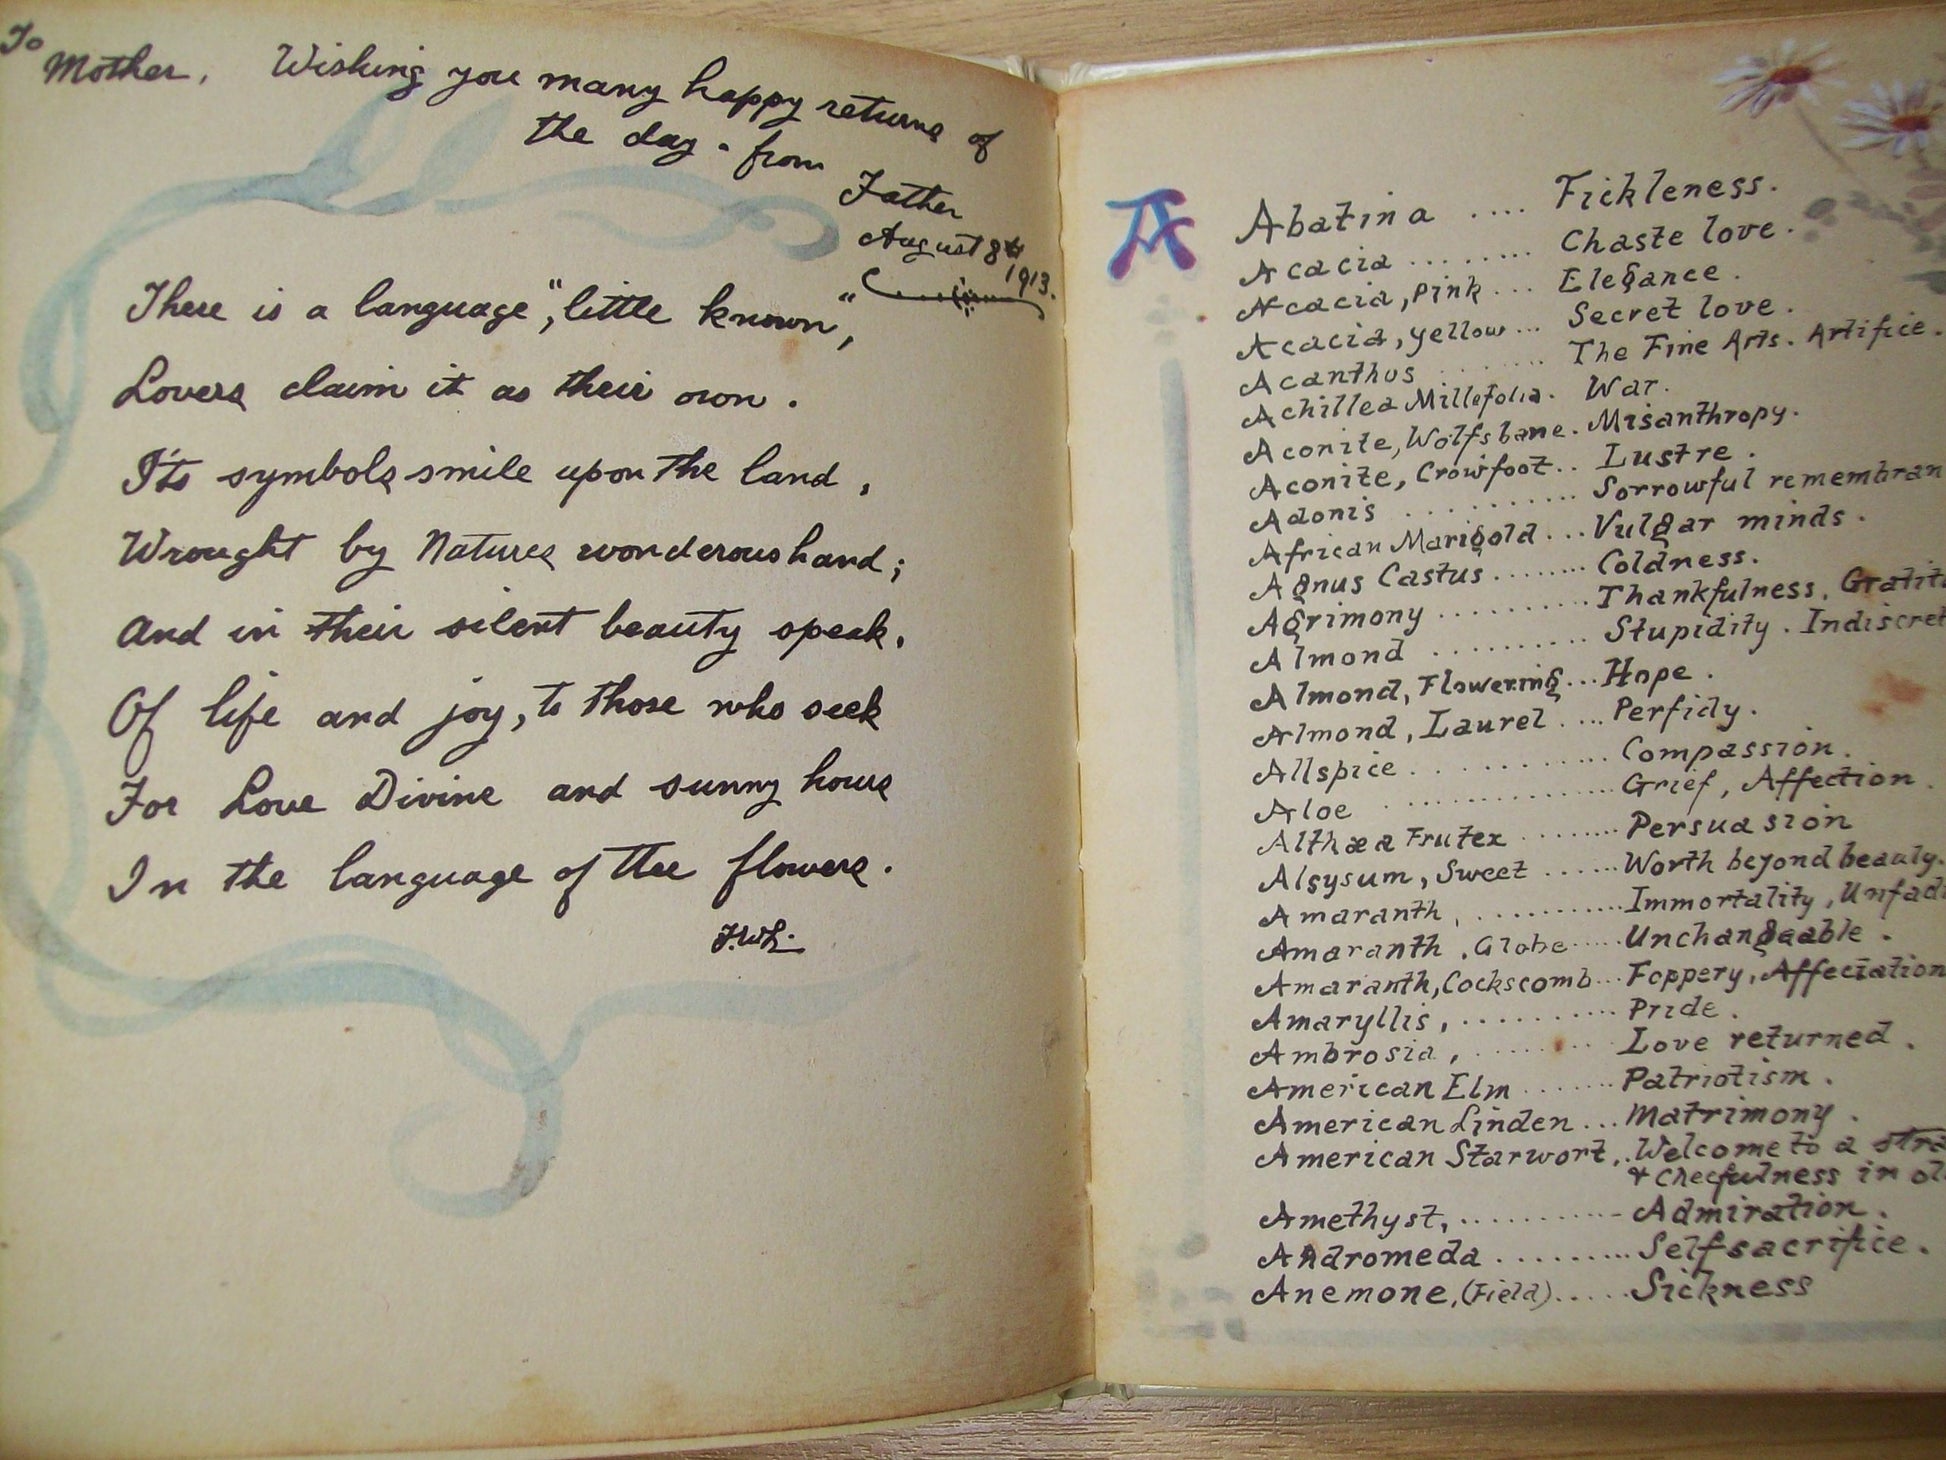 To
Mother. Wishing you many happy returns of
the day. from
Father
August 8th
1913.
There is a language, "little known",
Lovers claim it as their own.
It's symbols smile upon the land,
Wrought by Natures wonderous hand;
And in their silent beauty speak,
Of life and joy, to those who seek
For Love Divine and sunny hours
In the language of the flowers.
A
Abatina .... Fickleness.
Acacia ........ Chaste love.
Acacia, pink ... Elegance.
Acacia, yellow ... Secret love.
Acanthus ....... The Fine Arts. Artifice.
Achillea Millefolia. War.
Aconite, Wolfsbane. Misanthropy.
Aconite, Crowfoot.. Lustre.
Adonis .......... Sorrowful remembran
African Marigold ... Vulgar minds.
Agnus Castus ........ Coldness.
Agrimony .......... Thankfulness, Gratit
Almond .......... Stupidity. Indiscret
Almond, Flowering ... Hope.
Almond, Laurel .... Perfidy.
Allspice ............ Compassion.
Aloe .............. Grief, Affection.
Althæa Frutex ........ Persuasion
Alsysum, Sweet ...... Worth beyond beauty.
Amaranth, ............ Immortality, Unfad
Amaranth, Globe ..... Unchangeable.
Amaranth, Cockscomb... Foppery, Affectation
Amaryllis, .......... Pride.
Ambrosia, ........ Love returned.
American Elm ....... Patriotism.
American Linden ... Matrimony.
American Starwort, .. Welcome to a stra
& Cheefulness in ol
Amethyst, ........... Admiration.
Andromeda ......... Self sacrifice.
Anemone, (Field) ..... Sickness